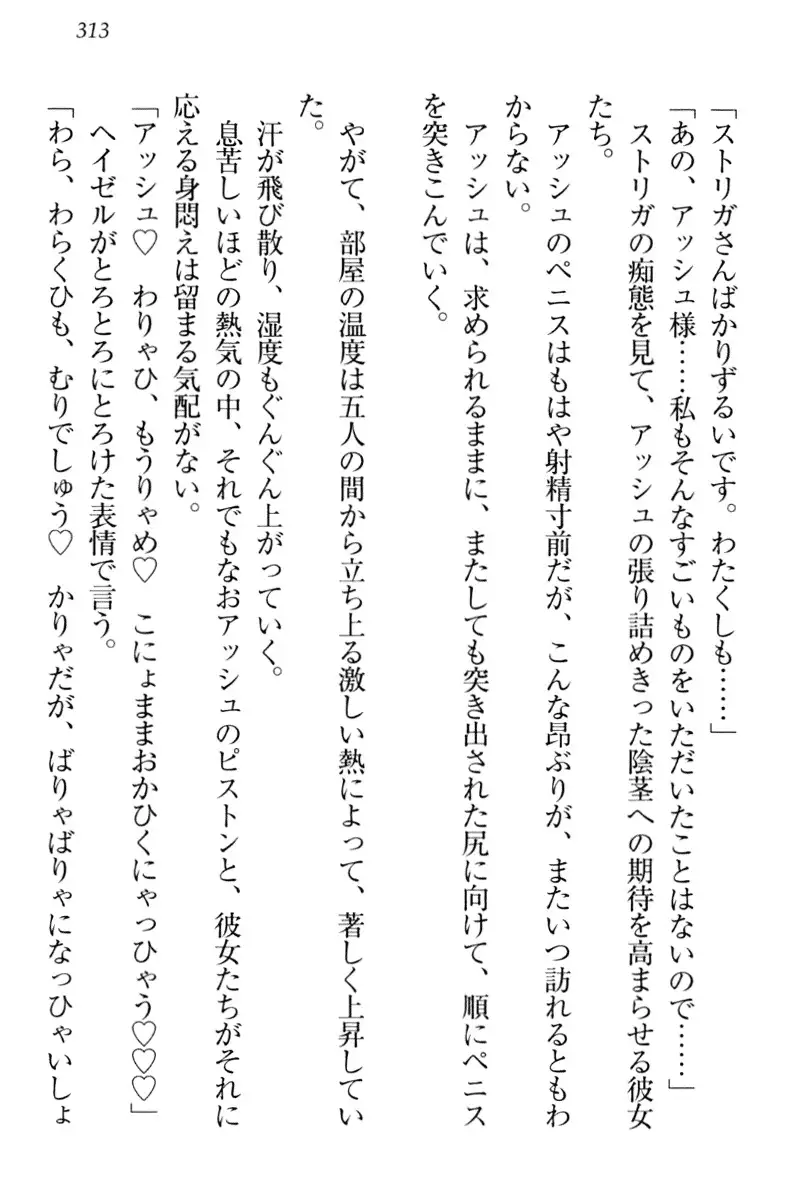 313
「ストリガさんばかりずるいです。わたくしも……」
「あの、アッシュ様……私もそんなすごいものをいただいたことはないので……」
　ストリガの痴態を見て、アッシュの張り詰めきった陰茎への期待を高まらせる彼女
たち。
　アッシュのペニスはもはや射精寸前だが、こんな昂ぶりが、またいつ訪れるともわ
からない。
　アッシュは、求められるままに、またしても突き出された尻に向けて、順にペニス
を突きこんでいく。
　やがて、部屋の温度は五人の間から立ち上る激しい熱によって、著しく上昇してい
た。
　汗が飛び散り、湿度もぐんぐん上がっていく。
　息苦しいほどの熱気の中、それでもなおアッシュのピストンと、彼女たちがそれに
応える身悶えは留まる気配がない。
「アッシュ♡　わりゃひ、もうりゃめ♡　こにょままおかひくにゃっひゃう♡♡♡」
　ヘイゼルがとろとろにとろけた表情で言う。
「わら、わらくひも、むりでしゅう♡　かりゃだが、ばりゃばりゃになっひゃいしょ